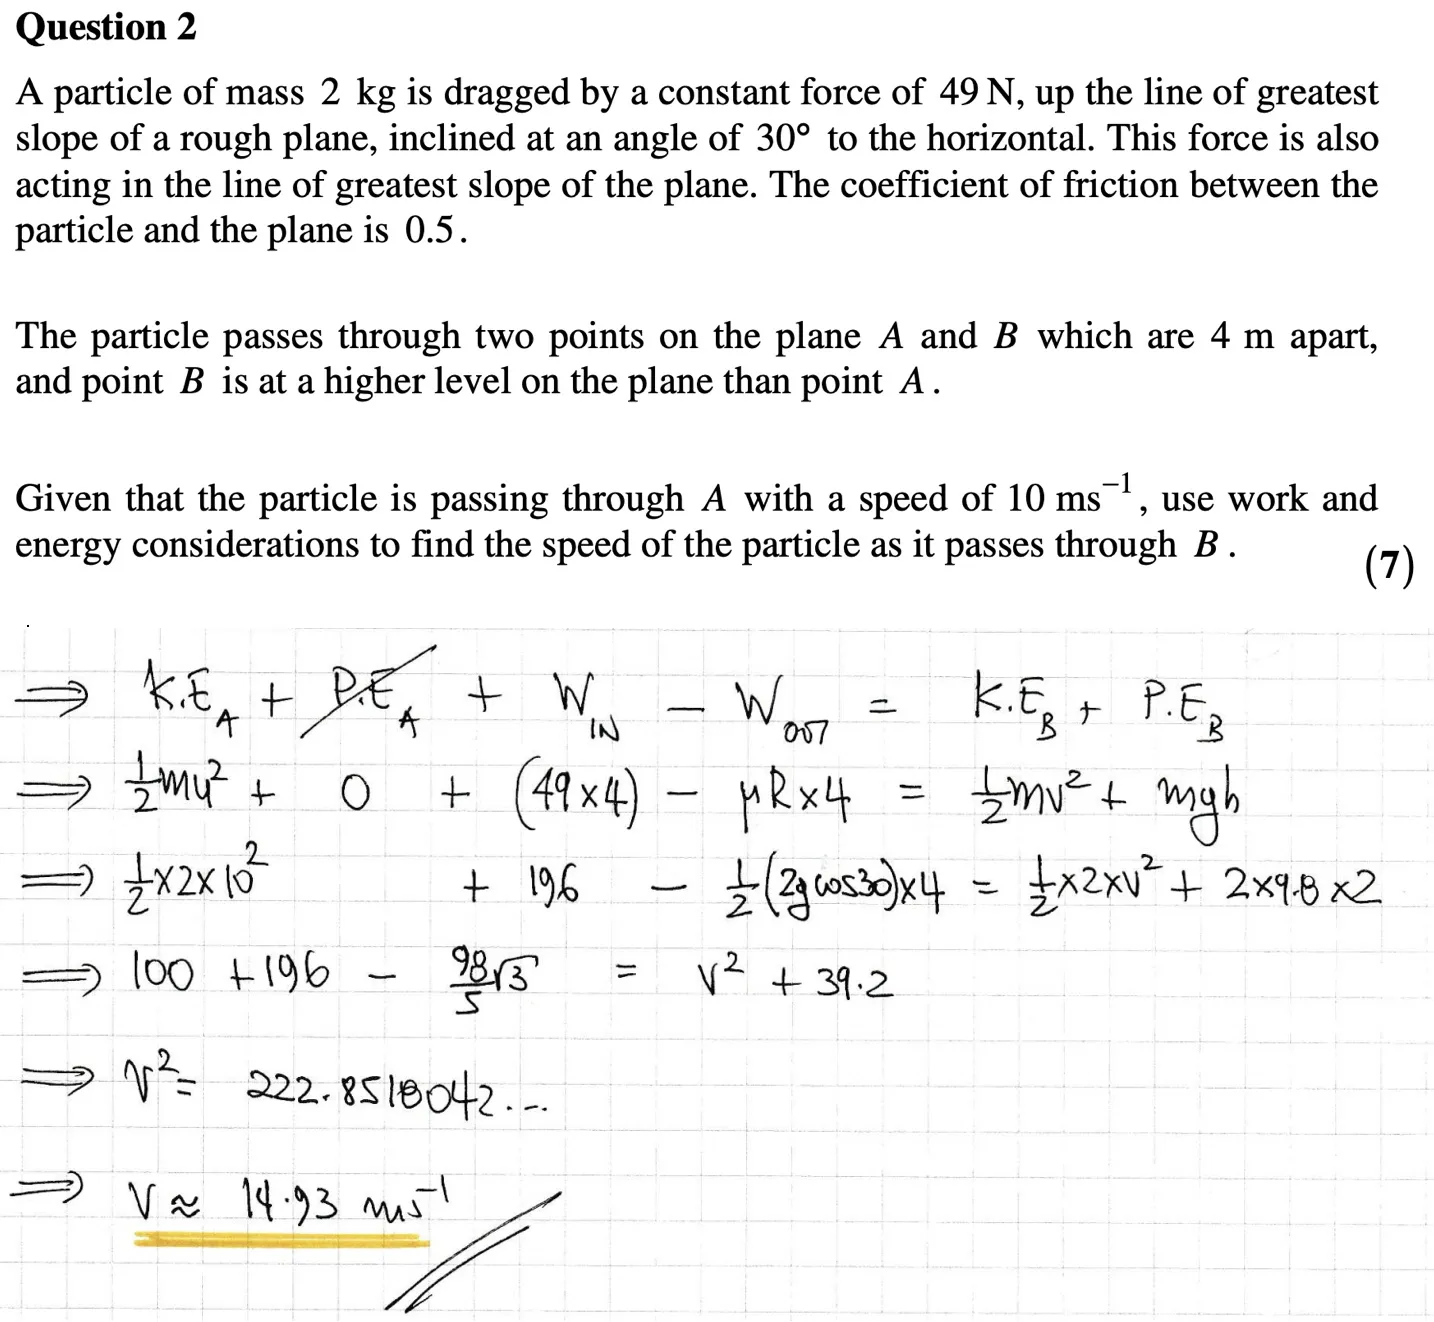 Question 2
A particle of mass 2 kg is dragged by a constant force of 49 N, up the line of greatest
slope of a rough plane, inclined at an angle of 30° to the horizontal. This force is also
acting in the line of greatest slope of the plane. The coefficient of friction between the
particle and the plane is 0.5.
The particle passes through two points on the plane A and B which are 4 m apart,
and point B is at a higher level on the plane than point A.
Given that the particle is passing through A with a speed of 10 ms⁻¹, use work and
energy considerations to find the speed of the particle as it passes through B.
(7)
⇒ K.E_A + P.E_A + W_IN − W_OUT = K.E_B + P.E_B
⇒ ½mu² + 0 + (49×4) − μR×4 = ½mv² + mgh
⇒ ½×2×10² + 196 − ½(2gcos30)×4 = ½×2×v² + 2×9.8×2
⇒ 100 + 196 − 98/5 √3 = v² + 39.2
⇒ v² = 222.8518042...
⇒ v ≈ 14.93 ms⁻¹